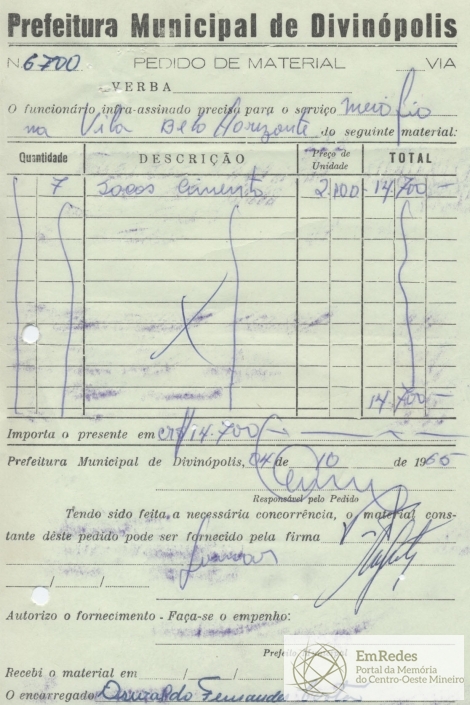 Prefeitura Municipal de Divinópolis
N. 6700 PEDIDO DE MATERIAL VIA
VERBA
O funcionário infra-assinado precisa para o serviço meio fio
na Vila Belo Horizonte do seguinte material:
Quantidade DESCRIÇÃO Preço de Unidade TOTAL
7 Sacos Cimento 2.100 14.700
14.700
Importa o presente em cr$ 14.700
Prefeitura Municipal de Divinópolis, 04 de 10 de 1965
Responsável pelo Pedido
Tendo sido feita a necessária concorrência, o material cons-
tante dêste pedido pode ser fornecido pela firma
/ /
Autorizo o fornecimento - Faça-se o empenho:
Prefeito
Recebi o material em / /
O encarregado Osvaldo Fernandes
EmRedes
Portal da Memória
do Centro-Oeste Mineiro